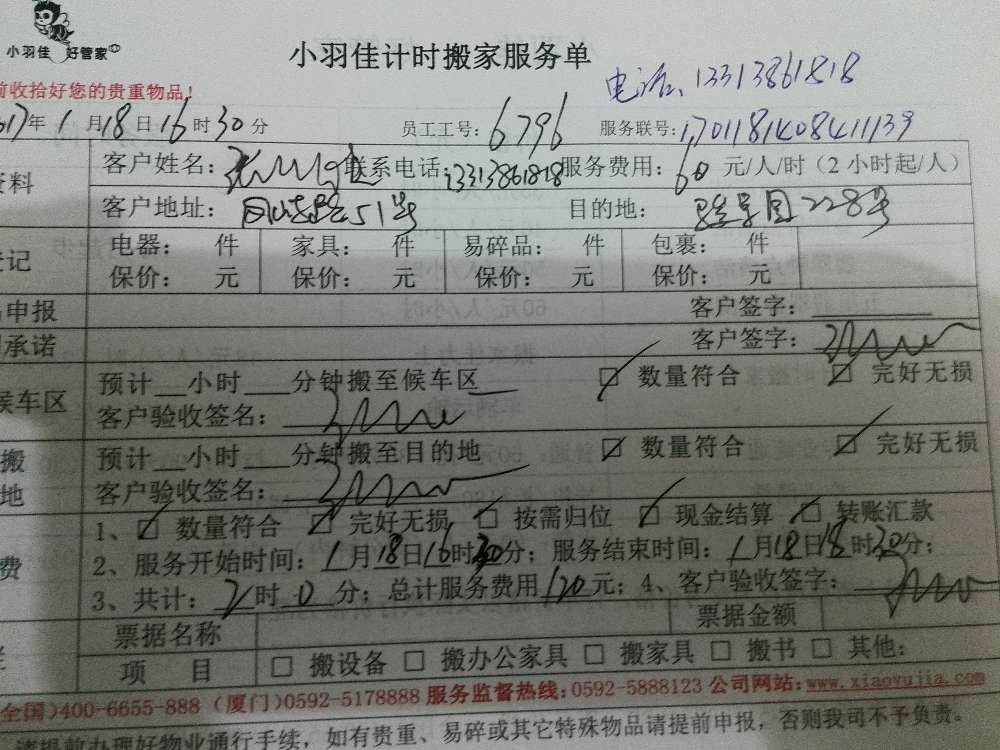 小羽佳 好管家
小羽佳计时搬家服务单
电话:13313861818
前收拾好您的贵重物品!
17年1月18日16时30分 员工工号:6796 服务联号:170118140841139
资料 客户姓名: 联系电话:13313861818 服务费用:60元/人/时(2小时起/人)
客户地址: 51号 目的地: 228号
记 电器: 件 家具: 件 易碎品: 件 包裹: 件
保价: 元 保价: 元 保价: 元 保价: 元
申报 客户签字:
承诺 客户签字:
候车区 预计__小时___分钟搬至候车区 ☑ 数量符合 ☑ 完好无损
客户验收签名:
搬 预计__小时___分钟搬至目的地 ☑ 数量符合 ☑ 完好无损
地 客户验收签名:
1、☑ 数量符合 ☑ 完好无损 ☑ 按需归位 ☑ 现金结算 ☑ 转账汇款
费 2、服务开始时间:1月18日16时30分;服务结束时间:1月18日18时30分;
3、共计:2时0分;总计服务费用120元;4、客户验收签字:
票据名称 票据金额
项 目 □ 搬设备 □ 搬办公家具 □ 搬家具 □ 搬书 □ 其他:
全国)400-6655-888 (厦门)0592-5178888 服务监督热线:0592-5888123 公司网站:www.xiaoyujia.com
请提前办理好物业通行手续,如有贵重、易碎或其它特殊物品请提前申报,否则我司不予负责。